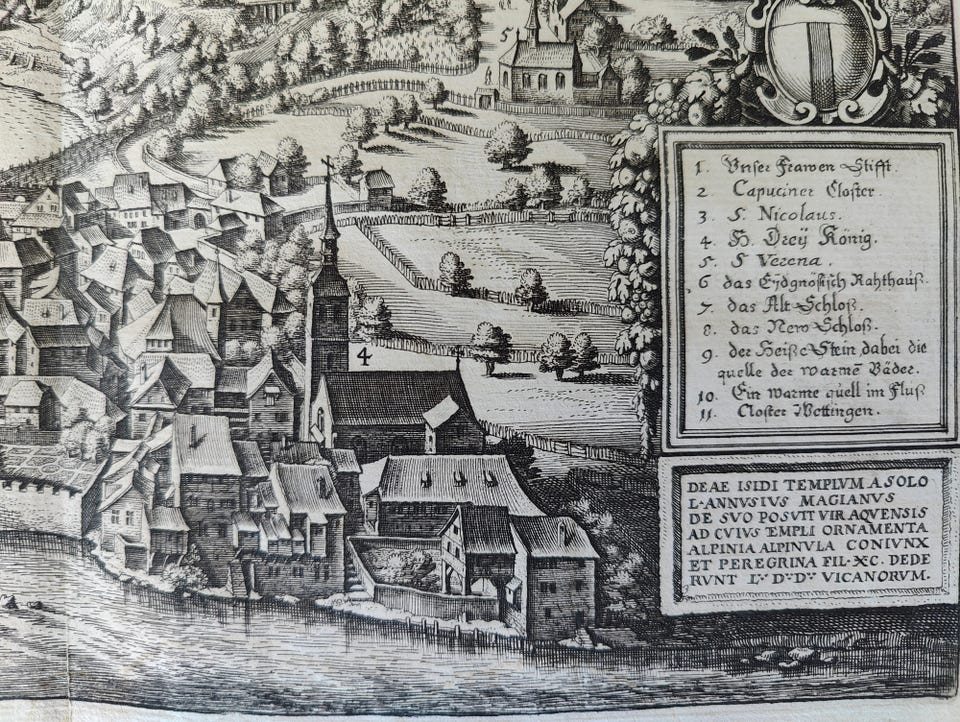 5
4
1. Vnser Frawen Stifft.
2 Capuciner Closter.
3. S. Nicolaus.
4. H. Dreÿ König.
5. S Verena.
6 das Eÿdgnösisch Rahthauß.
7. das Alt-Schloß.
8. das New-Schloß.
9. der Heiße Stein dabei die
quelle der warmē Bäder.
10. Ein warme quell im Fluß
11. Closter Wettingen.
DEAE ISIDI TEMPLVM A SOLO
L·ANNVSIVS MAGIANVS
DE SVO POSVTI VIR AQVENSIS
AD CVIVS TEMPLI ORNAMENTA
ALPINIA ALPINVLA CONIVNX
ET PEREGRINA FIL·XC. DEDE
RVNT L· D·D· VICANORVM.